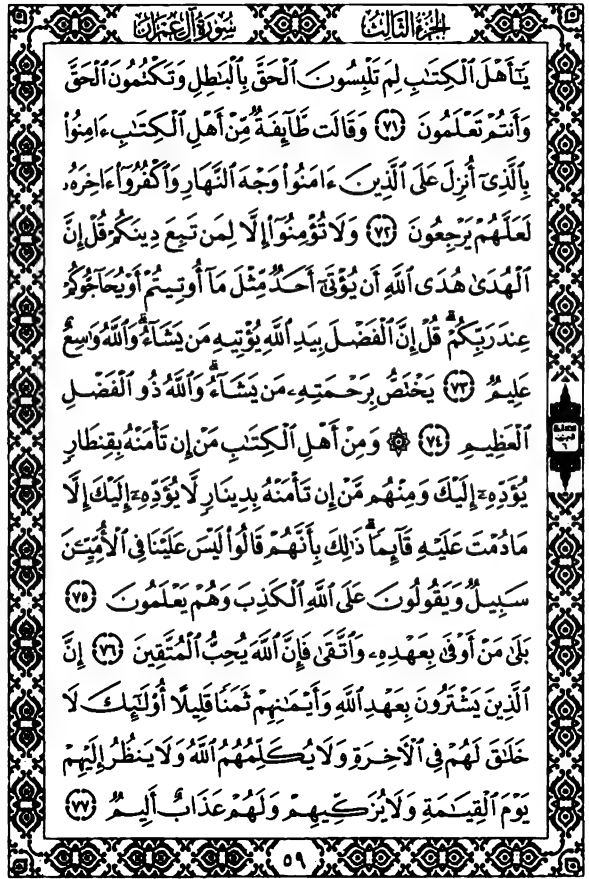 الجزء الثالث
سورة آل عمران
يَٰٓأَهۡلَ ٱلۡكِتَٰبِ لِمَ تَلۡبِسُونَ ٱلۡحَقَّ بِٱلۡبَٰطِلِ وَتَكۡتُمُونَ ٱلۡحَقَّ
وَأَنتُمۡ تَعۡلَمُونَ ٧١ وَقَالَت طَّآئِفَةٞ مِّنۡ أَهۡلِ ٱلۡكِتَٰبِ ءَامِنُواْ
بِٱلَّذِيٓ أُنزِلَ عَلَى ٱلَّذِينَ ءَامَنُواْ وَجۡهَ ٱلنَّهَارِ وَٱكۡفُرُوٓاْ ءَاخِرَهُۥ
لَعَلَّهُمۡ يَرۡجِعُونَ ٧٢ وَلَا تُؤۡمِنُوٓاْ إِلَّا لِمَن تَبِعَ دِينَكُمۡ قُلۡ إِنَّ
ٱلۡهُدَىٰ هُدَى ٱللَّهِ أَن يُؤۡتَىٰٓ أَحَدٞ مِّثۡلَ مَآ أُوتِيتُمۡ أَوۡ يُحَآجُّوكُمۡ
عِندَ رَبِّكُمۡۗ قُلۡ إِنَّ ٱلۡفَضۡلَ بِيَدِ ٱللَّهِ يُؤۡتِيهِ مَن يَشَآءُۗ وَٱللَّهُ وَٰسِعٌ
عَلِيمٞ ٧٣ يَخۡتَصُّ بِرَحۡمَتِهِۦ مَن يَشَآءُۗ وَٱللَّهُ ذُو ٱلۡفَضۡلِ
ٱلۡعَظِيمِ ٧٤ ۞ وَمِنۡ أَهۡلِ ٱلۡكِتَٰبِ مَنۡ إِن تَأۡمَنۡهُ بِقِنطَارٖ
يُؤَدِّهِۦٓ إِلَيۡكَ وَمِنۡهُم مَّنۡ إِن تَأۡمَنۡهُ بِدِينَارٖ لَّا يُؤَدِّهِۦٓ إِلَيۡكَ إِلَّا
مَادُمۡتَ عَلَيۡهِ قَآئِمٗاۗ ذَٰلِكَ بِأَنَّهُمۡ قَالُواْ لَيۡسَ عَلَيۡنَا فِي ٱلۡأُمِّيِّـۧنَ
سَبِيلٞ وَيَقُولُونَ عَلَى ٱللَّهِ ٱلۡكَذِبَ وَهُمۡ يَعۡلَمُونَ ٧٥
بَلَىٰ مَنۡ أَوۡفَىٰ بِعَهۡدِهِۦ وَٱتَّقَىٰ فَإِنَّ ٱللَّهَ يُحِبُّ ٱلۡمُتَّقِينَ ٧٦ إِنَّ
ٱلَّذِينَ يَشۡتَرُونَ بِعَهۡدِ ٱللَّهِ وَأَيۡمَٰنِهِمۡ ثَمَنٗا قَلِيلًا أُوْلَٰٓئِكَ لَا
خَلَٰقَ لَهُمۡ فِي ٱلۡأٓخِرَةِ وَلَا يُكَلِّمُهُمُ ٱللَّهُ وَلَا يَنظُرُ إِلَيۡهِمۡ
يَوۡمَ ٱلۡقِيَٰمَةِ وَلَا يُزَكِّيهِمۡ وَلَهُمۡ عَذَابٌ أَلِيمٞ ٧٧
٥٩